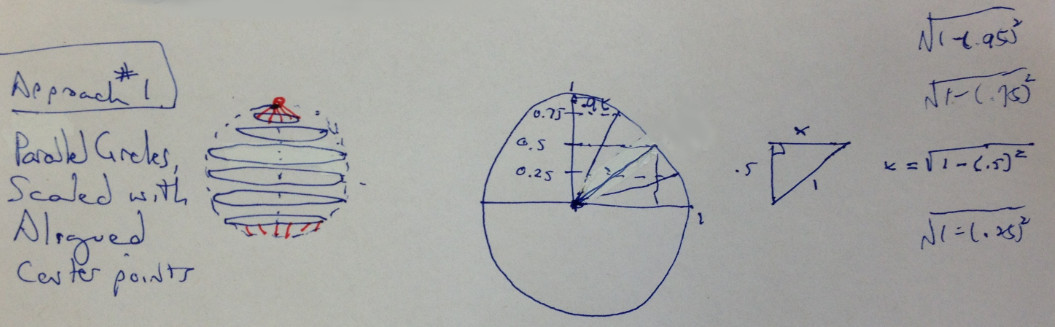 Approach #1
Parallel Circles,
Scaled with
Aligned
Center points
1
.95
0.75
0.5
0.25
1
x
.5
1
√1-(.95)²
√1-(.75)²
x = √1-(.5)²
√1-(.25)²